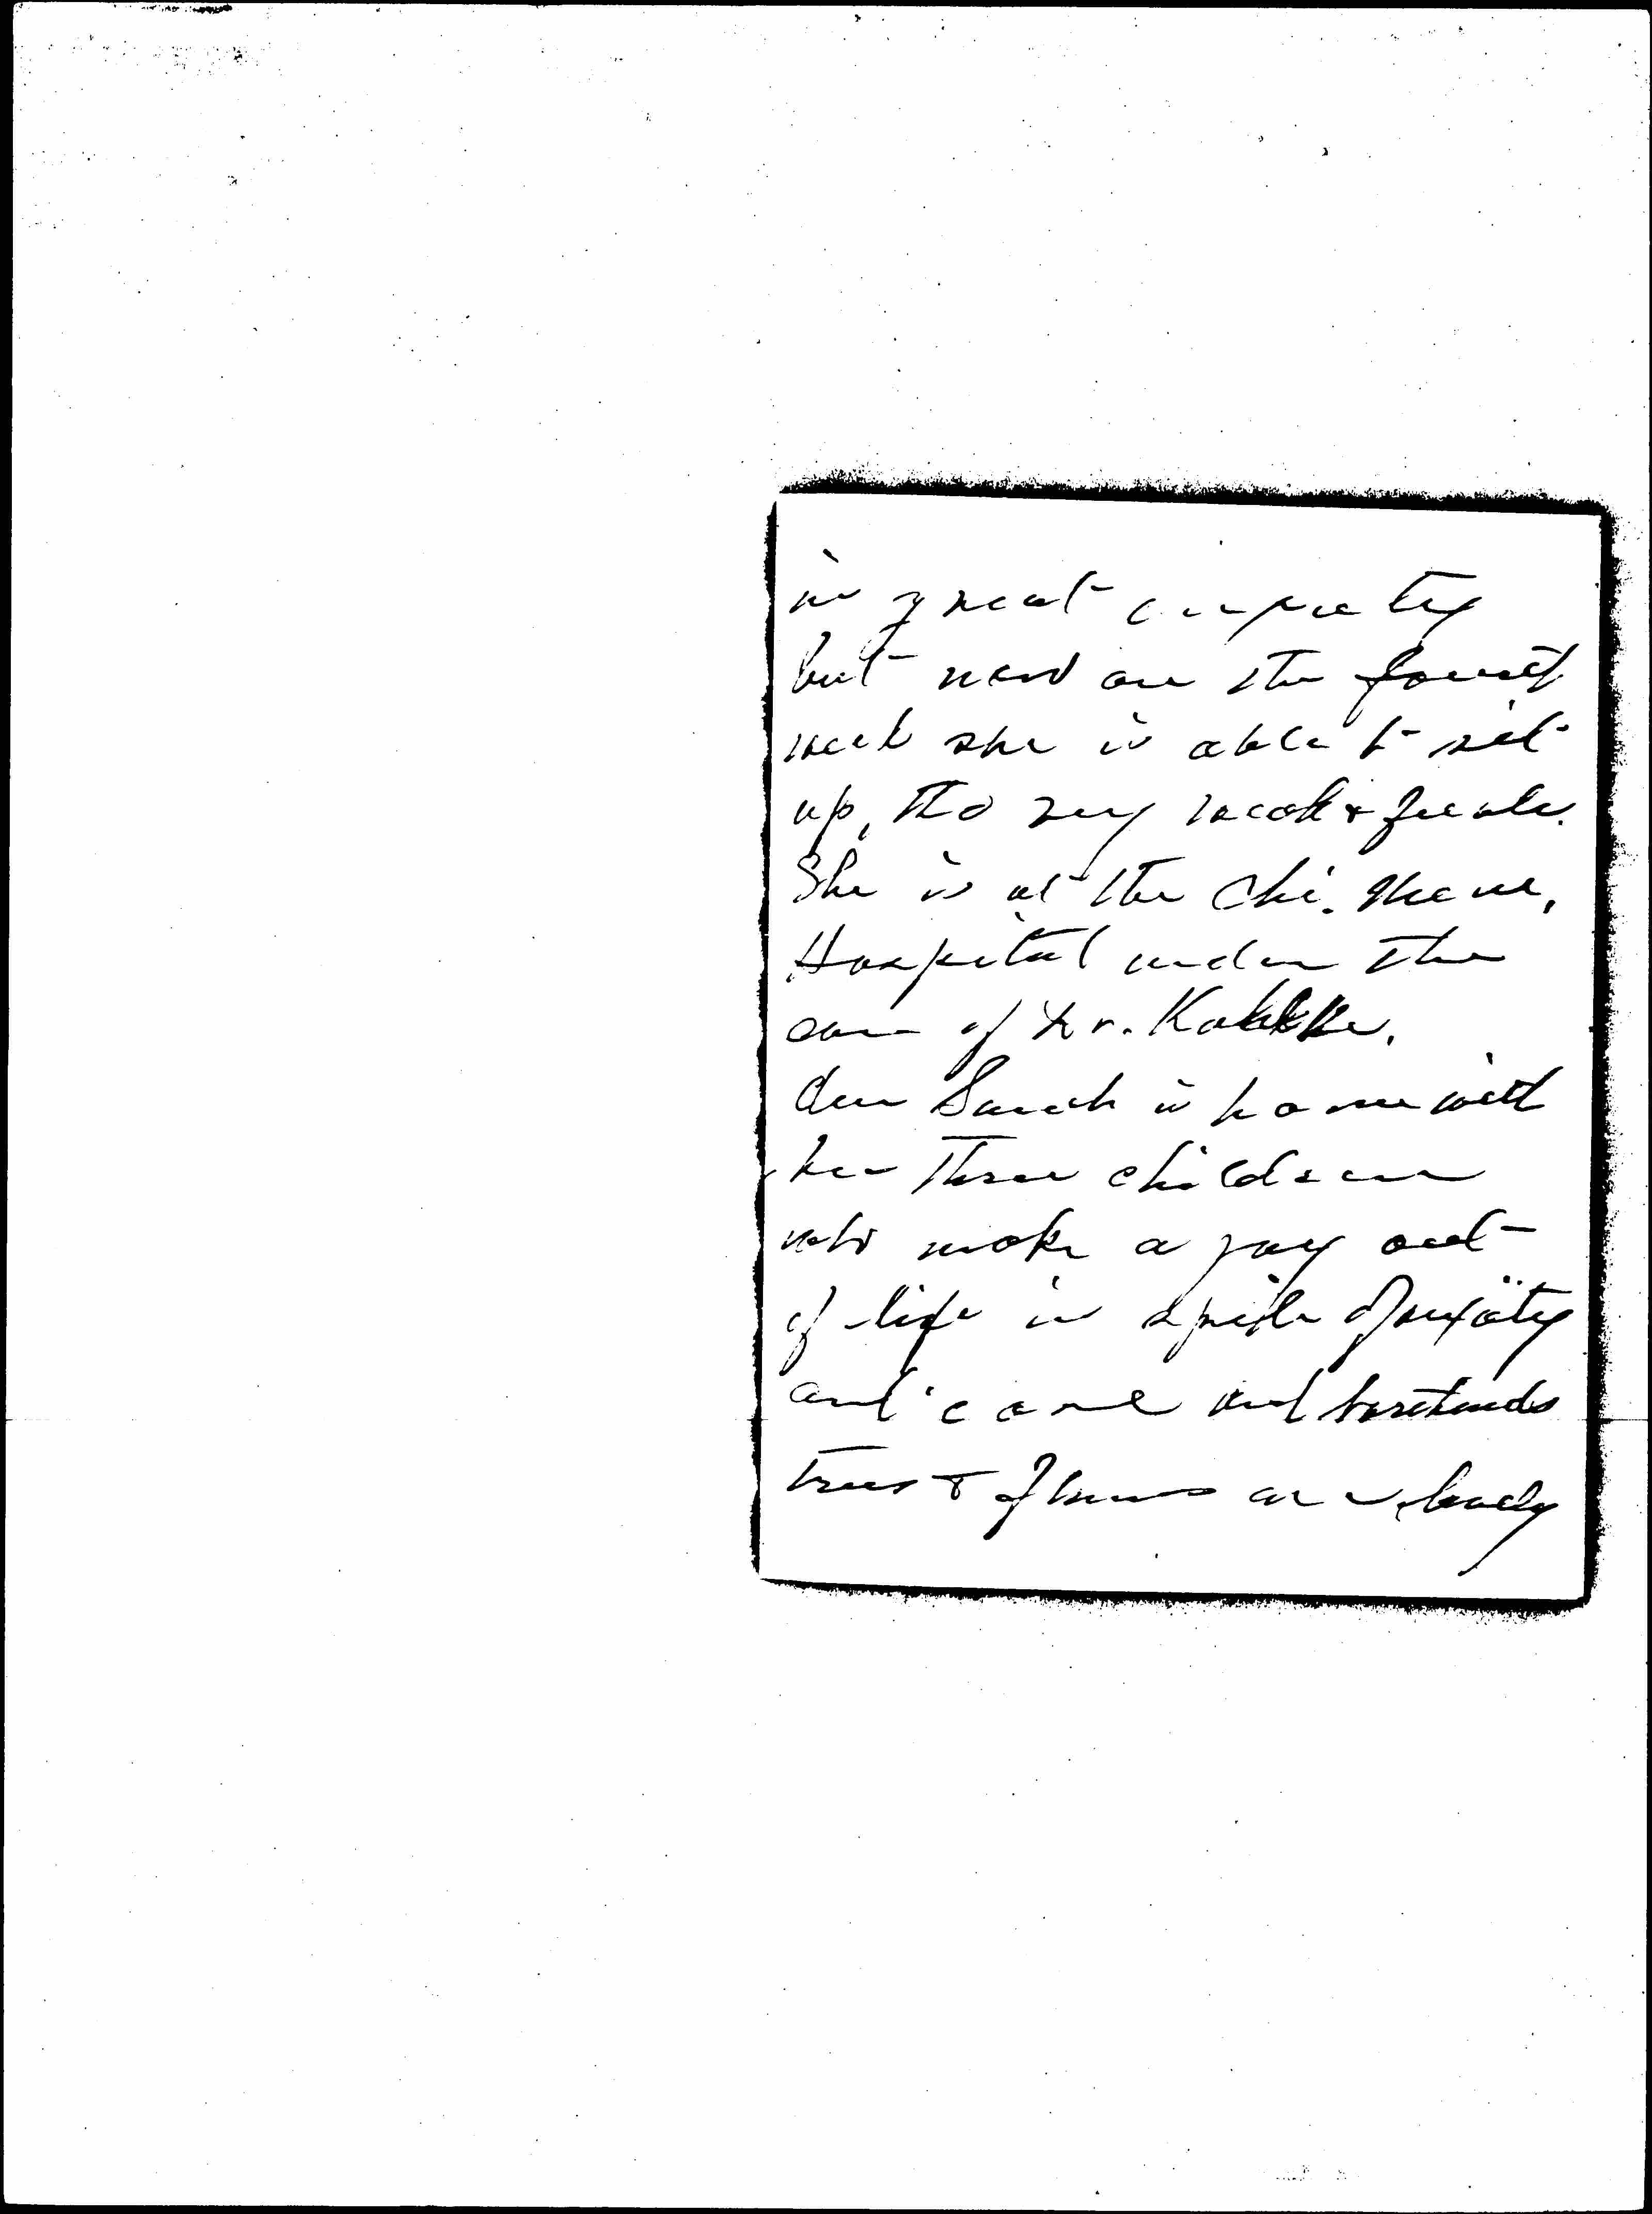 in great anxiety
but now on the fourth
week she is able to sit
up, tho very weak & feeble.
She is at the Chi. Mem.
Hospital under the
care of Dr.
Our Sarah is home with
her three children
who make a joy out
of life in spite of anxiety
and care and
trees & flowers are lovely